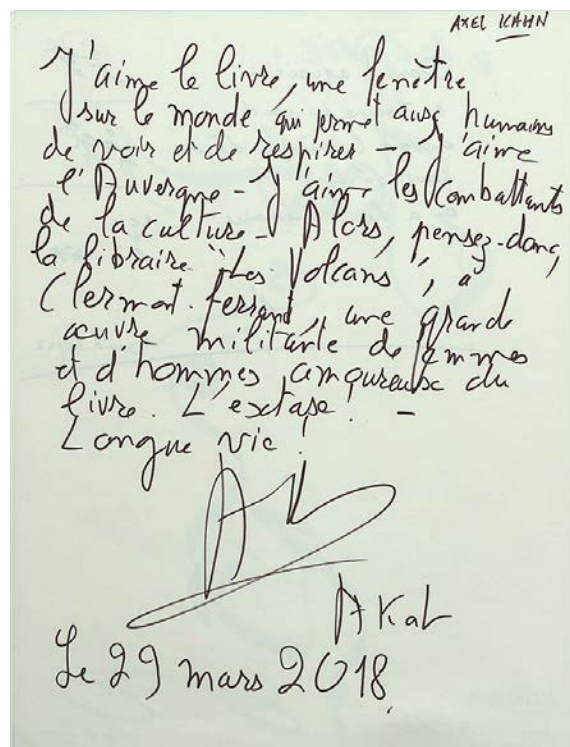 AXEL KAHN
J'aime le livre, une fenêtre
sur le monde qui permet aux humains
de voir et de respirer - J'aime
l'Auvergne - J'aime les combattants
de la culture - Alors, pensez-donc,
la libraire "Les Volcans", à
Clermont-Ferrand, une grande
œuvre militante de femmes
et d'hommes amoureux du
livre. L'extase ! -
Longue vie !
A Kah
Le 29 mars 2018.